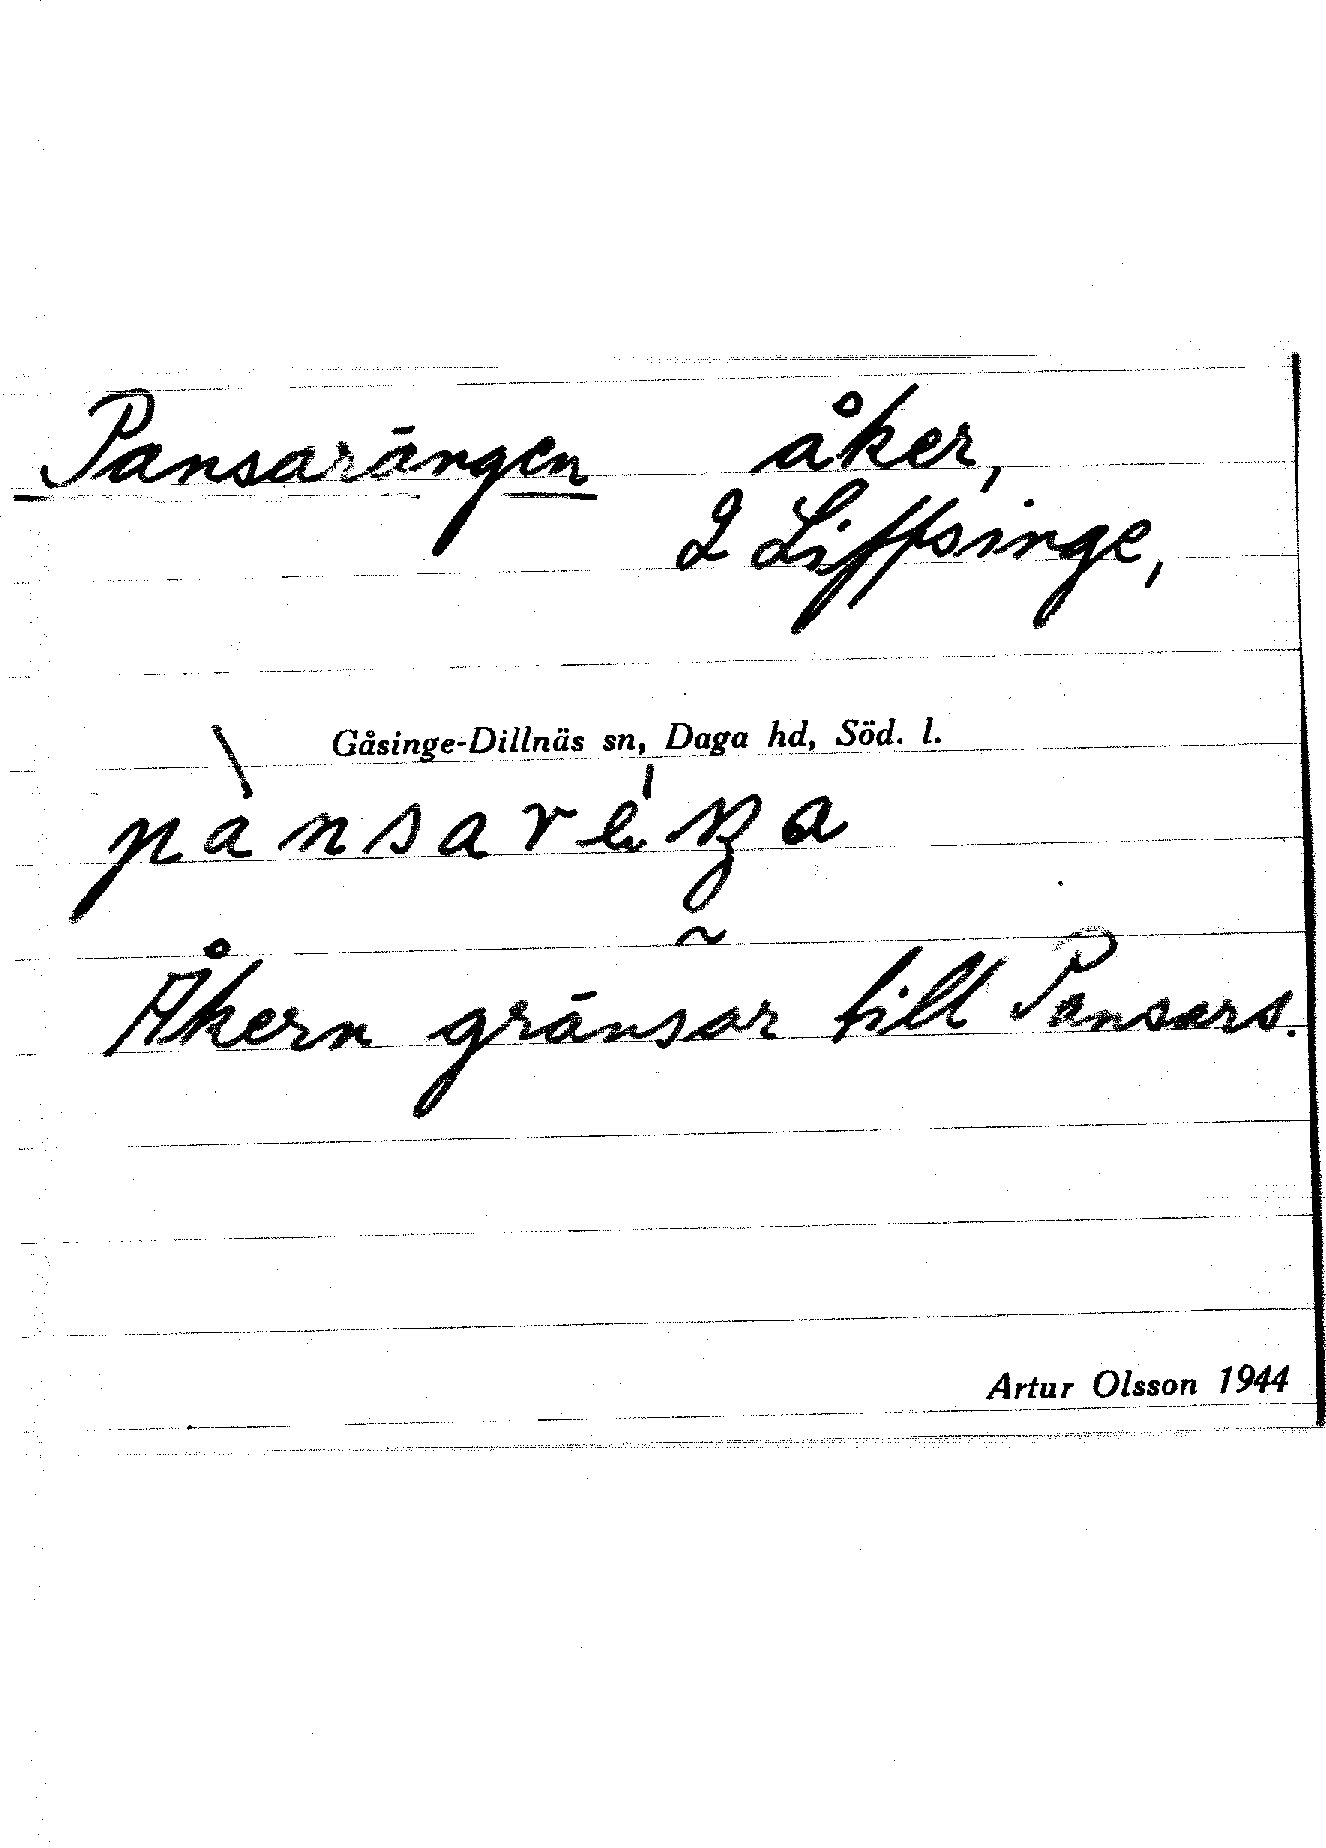 Pansarängen åker,
2 Liffsinge,
Gåsinge-Dillnäs sn, Daga hd, Söd. l.
Åkern gränsar till Pansars.
Artur Olsson 1944